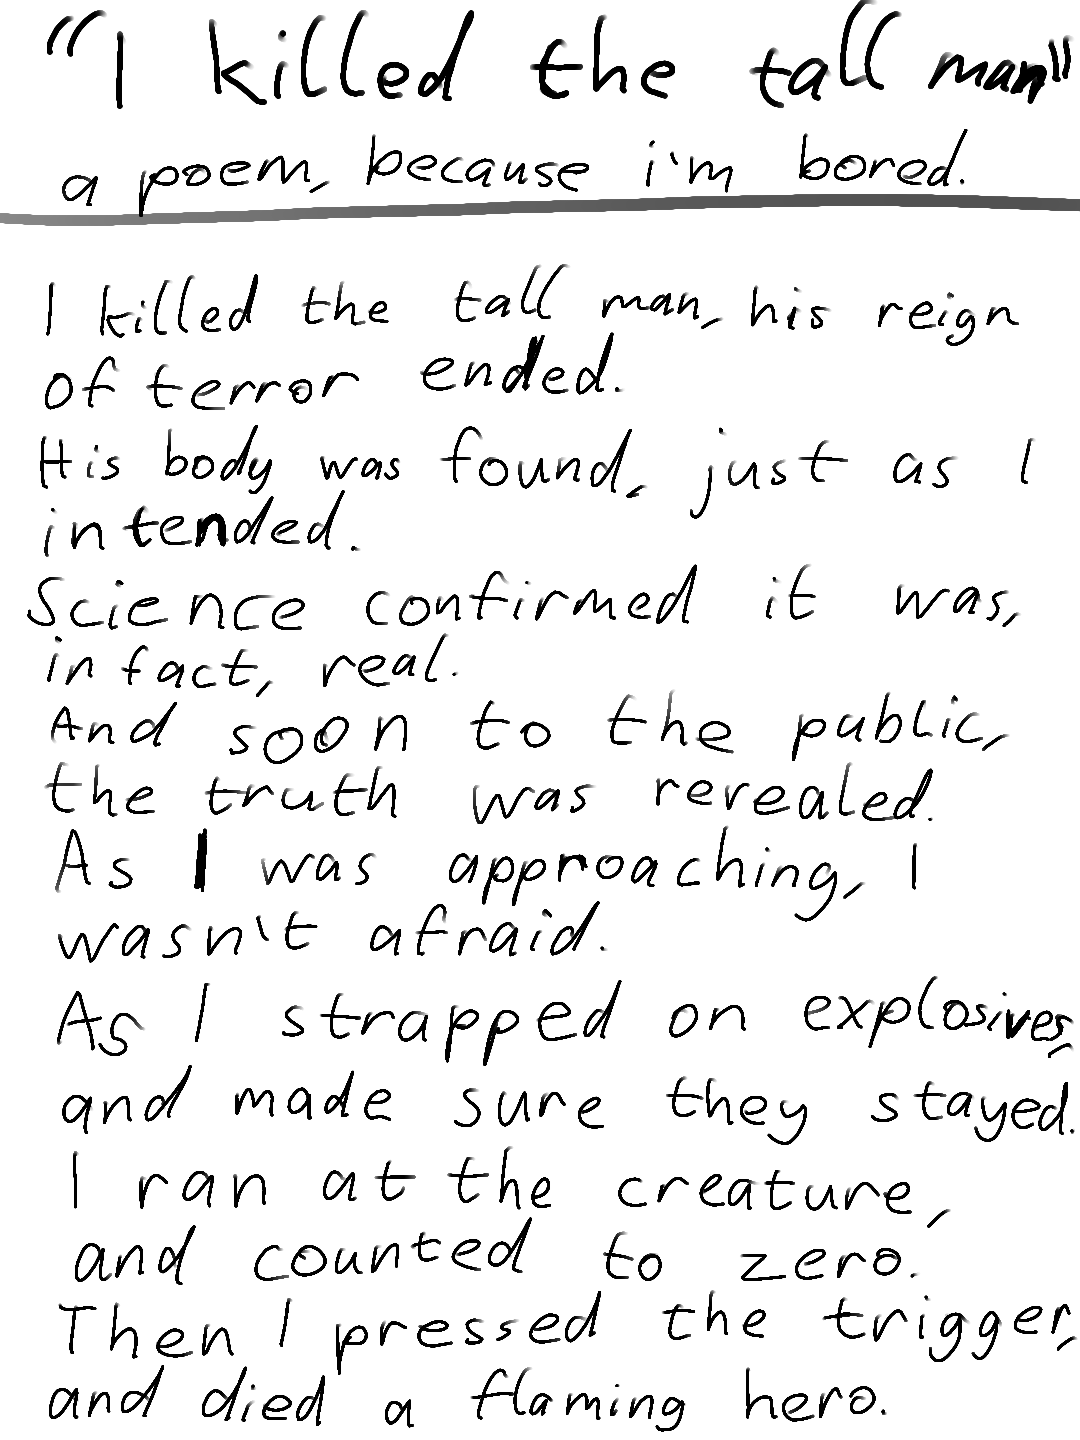 "I killed the tall man"
a poem, because i'm bored.
I killed the tall man, his reign
of terror ended.
His body was found, just as I
intended.
Science confirmed it was,
in fact, real.
And soon to the public,
the truth was revealed.
As I was approaching, I
wasn't afraid.
As I strapped on explosives,
and made sure they stayed.
I ran at the creature,
and counted to zero.
Then I pressed the trigger,
and died a flaming hero.